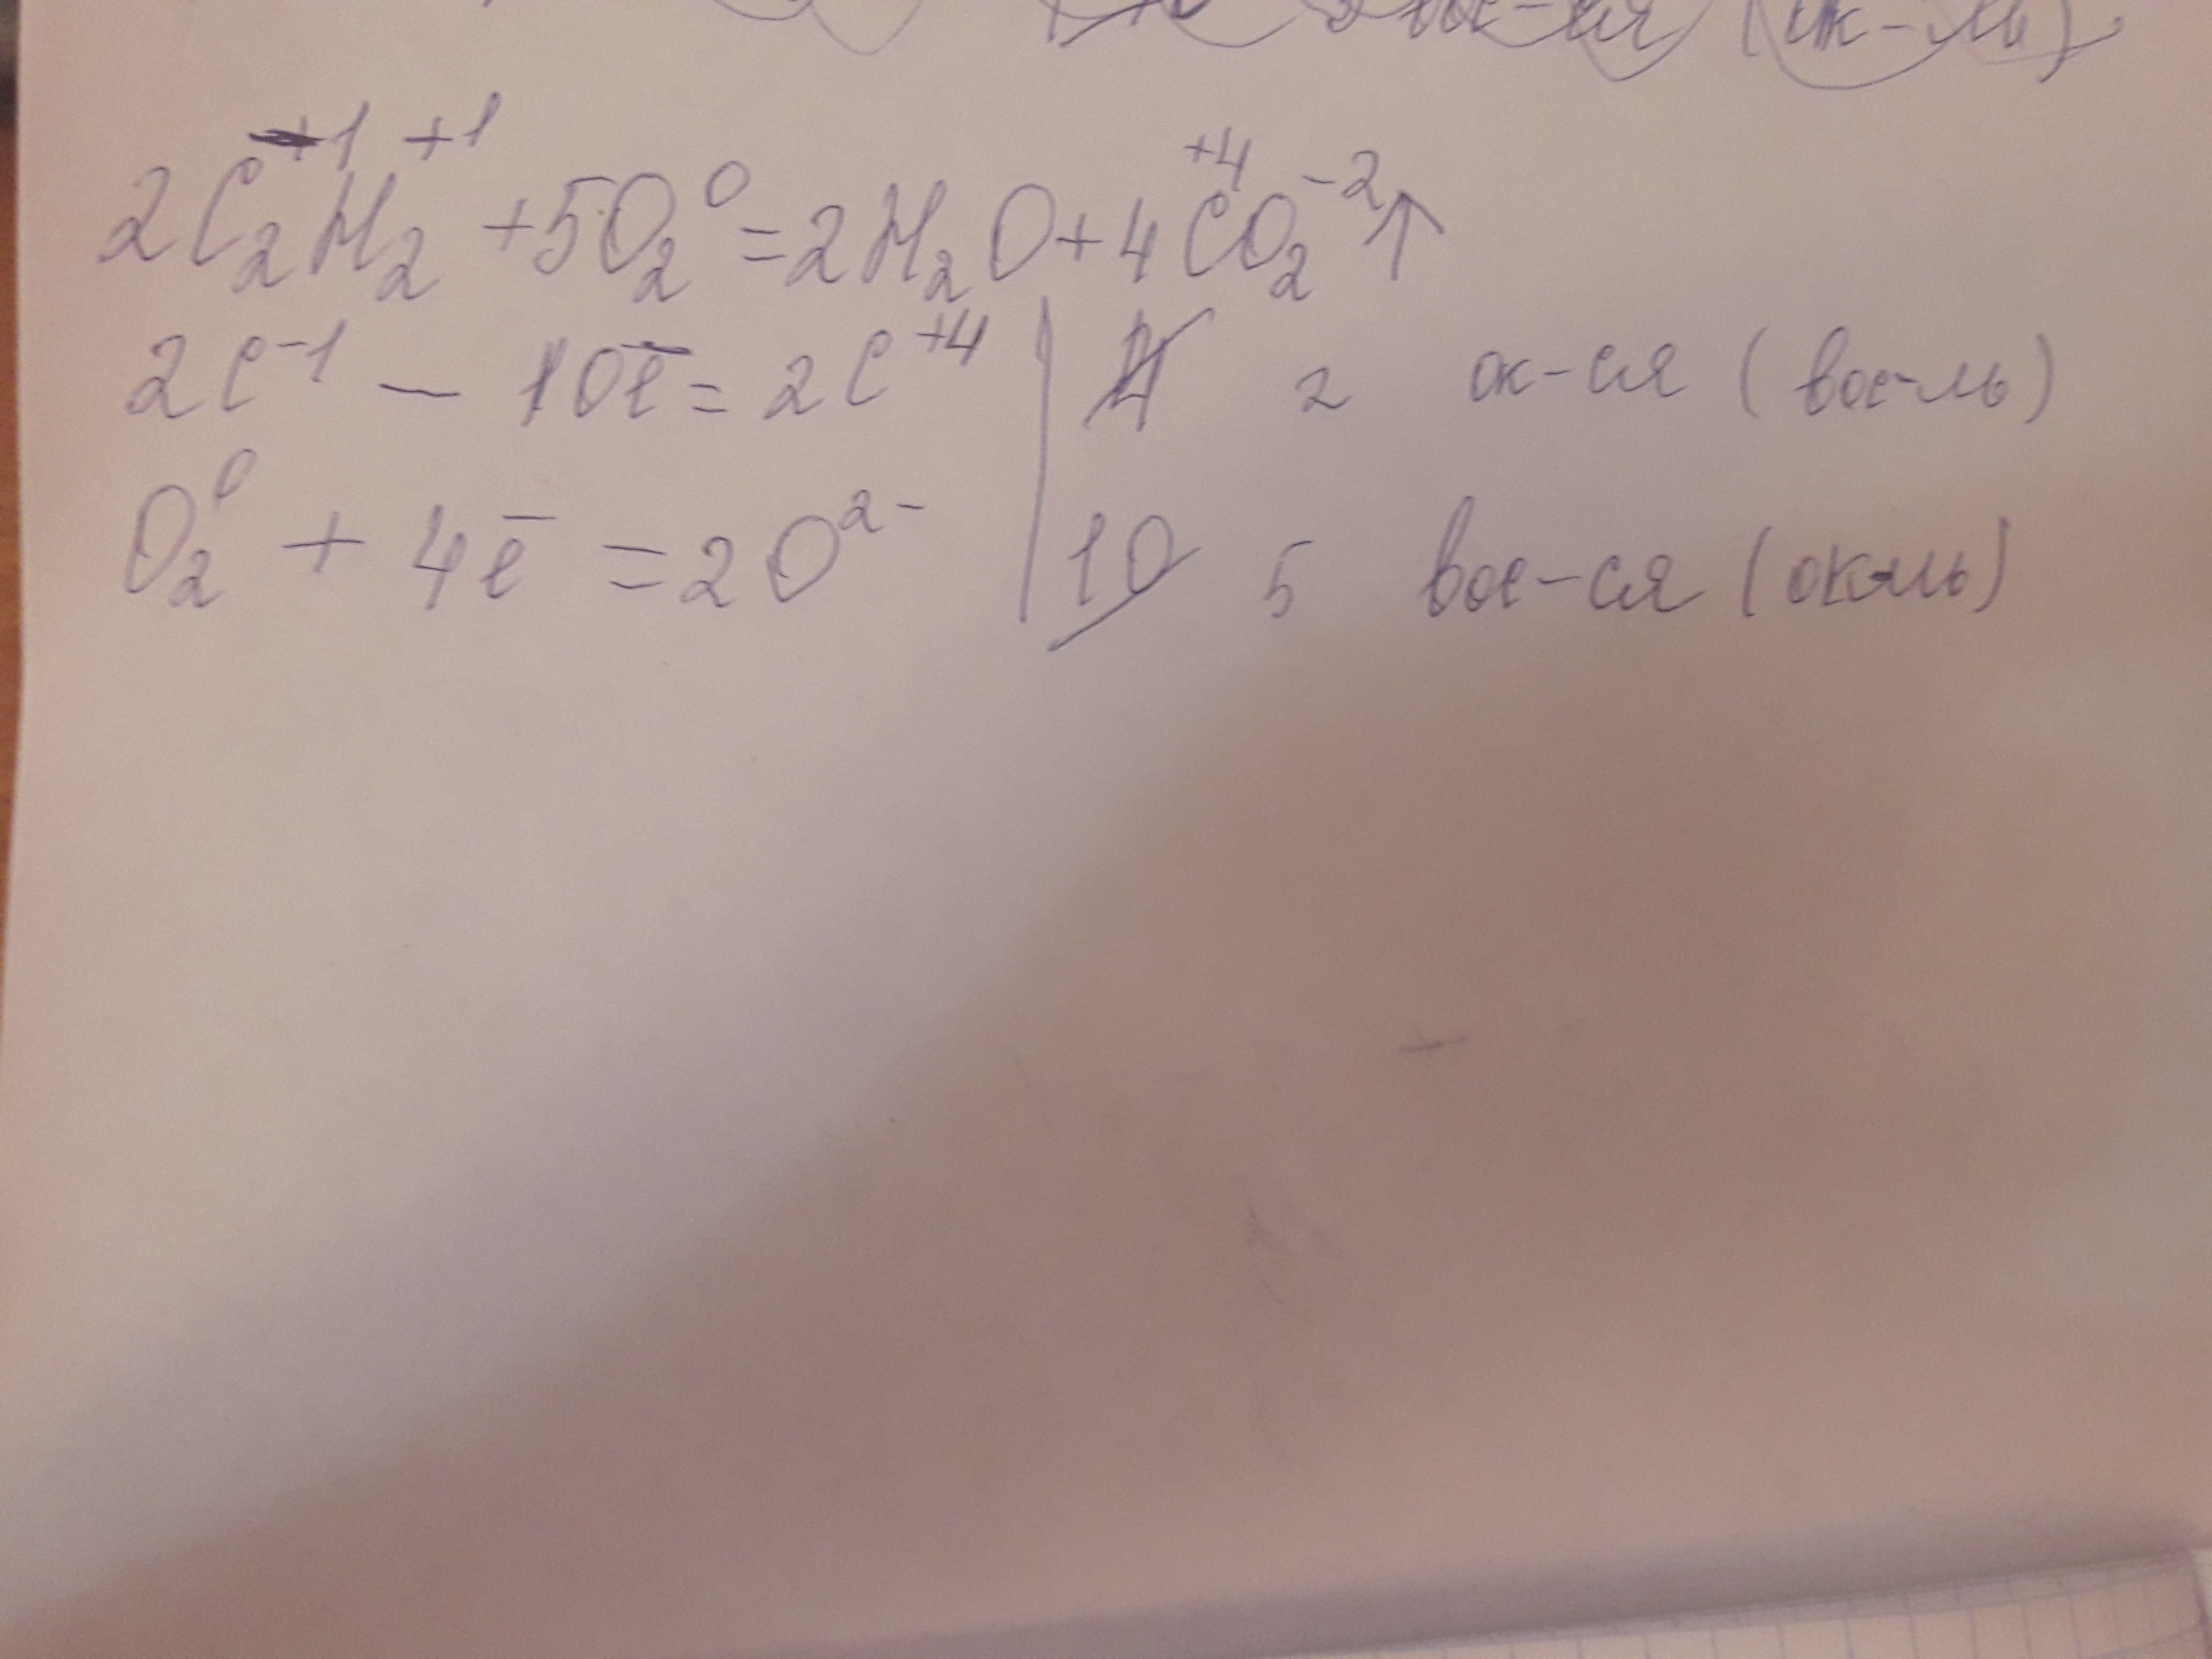 вос-ся (ок-ль)
2C₂⁻¹H₂⁺¹ + 5O₂⁰ = 2H₂O + 4C⁺⁴O₂⁻²↑
2C⁻¹ − 10e̅ = 2C⁺⁴ | 4 2 ок-ся (вос-ль)
O₂⁰ + 4e̅ = 2O²⁻ | 10 5 вос-ся (ок-ль)